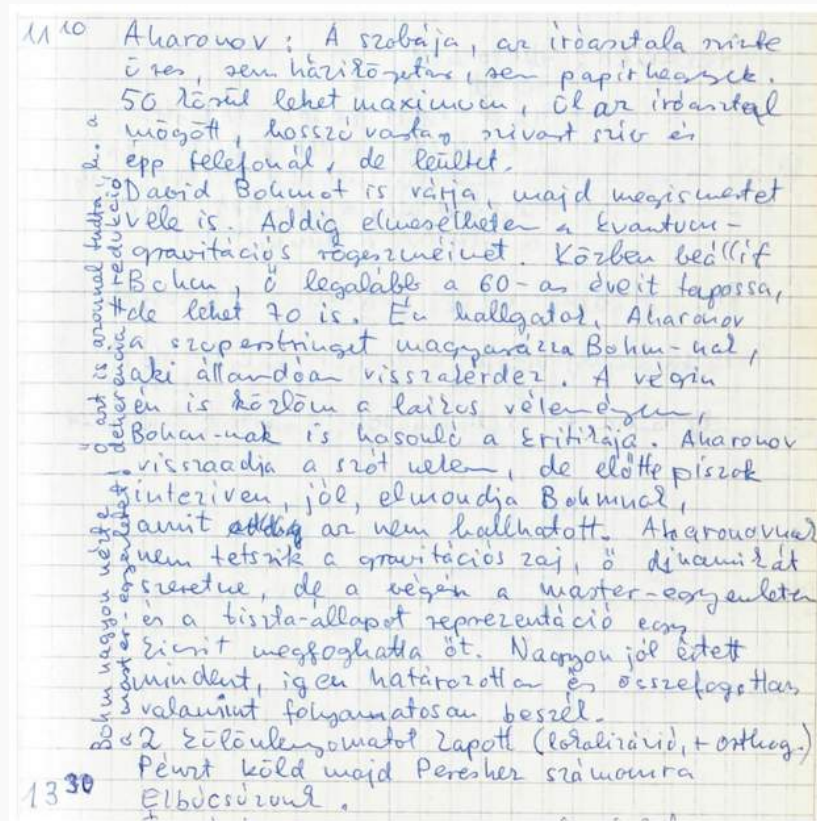 11 10 Aharonov: A szobája, az íróasztala szinte
üres, sem házikószetás, sem papírhegyek.
50 körül lehet maximum, ül az íróasztal
mögött, hosszú vastag szivart szív és
épp telefonál, de leültet.
David Bohmot is várja, majd megismertet
vele is. Addig elmesélhetem a kvantum-
gravitációs rögeszméimet. Közben beállít
Bohm, ő legalább a 60-as éveit tapossa,
de lehet 70 is. Én hallgatok, Aharonov
a szuperstringet magyarázza Bohm-nak,
aki állandóan visszakérdez. A végén
én is közlöm a laikus véleményem,
Bohm-nak is hasonló a kritikája. Aharonov
visszaadja a szót nekem, de előtte piszok
intezíven, jól, elmondja Bohmnak,
amit az nem hallhatott. Aharonovnak
nem tetszik a gravitációs zaj, ő dinamikát
szeretne, de a végén a master-egyenletem
és a tiszta-állapot reprezentáció egy
kicsit megfoghatta őt. Nagyon jól értett
mindent, igen határozottan és összefogottan
valamint folyamatosan beszél.
2 különlenyomatot kapott (lokalizáció, + orthog.)
Pénzt küld majd Pereshez számomra
13 30 Elbúcsúzunk.
Bohm nagyon nézte a
master-egyenletet! Ő azt is azonnal tudta, h. a
dekoherencia ≠ redukció